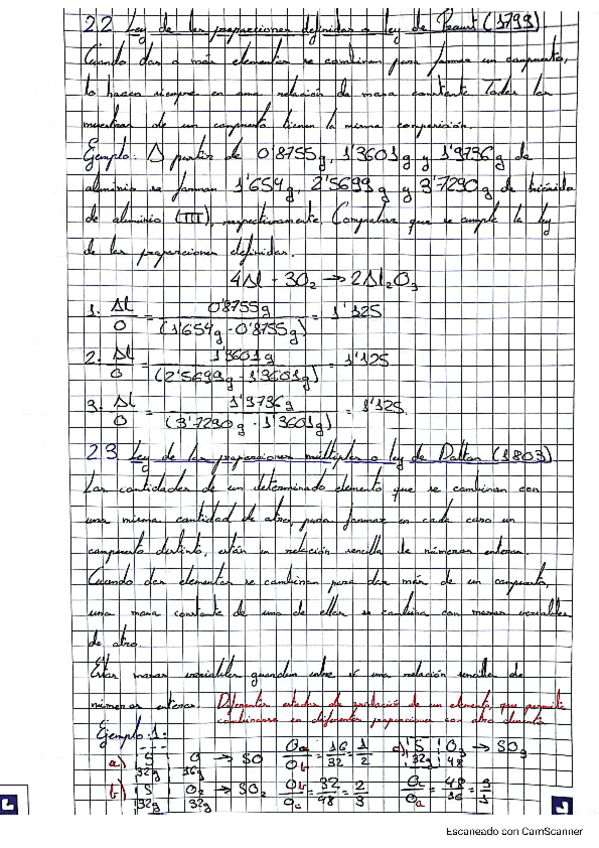 2.2 Ley de las proporciones definidas o ley de Proust (1799)
Cuando dos o más elementos se combinan para formar un compuesto,
lo hacen siempre en una relación de masa constante. Todas las
muestras de un compuesto tienen la misma composición.
Ejemplo: A partir de 0'8755g, 1'3601g y 1'9736g de
aluminio se forman 1'654g, 2'5699g y 3'7290g de trióxido
de aluminio (III), respectivamente. Comprobar que se cumple la ley
de las proporciones definidas.
4Al - 3O₂ → 2Al₂O₃
1. Al/O = 0'8755g/(1'654g - 0'8755g) = 1'125
2. Al/O = 1'3601g/(2'5699g - 1'3601g) = 1'125
3. Al/O = 1'9736g/(3'7290g - 1'3601g) = 1'125
2.3 Ley de las proporciones múltiples o ley de Dalton (1803)
Las cantidades de un determinado elemento que se combinan con
una misma cantidad de otro, para formar en cada caso un
compuesto distinto, están en relación sencilla de números enteros.
Cuando dos elementos se combinan para dar más de un compuesto,
una masa constante de uno de ellos se combina con masas variables
de otro.
Estas masas variables guardan entre sí una relación sencilla de
números enteros. Diferentes estados de oxidación de un elemento, que permite
combinarse en diferentes proporciones con otro elemento
Ejemplo 1:
a) S O → SO Oa/Ob = 16/32 = 1/2 c) S O₃ → SO₃
32g 16g 32g 48
b) S O₂ → SO₂ Ob/Oc = 32/48 = 2/3 Oc/Oa = 48/16 = 3/1
32g 32g
Escaneado con CamScanner